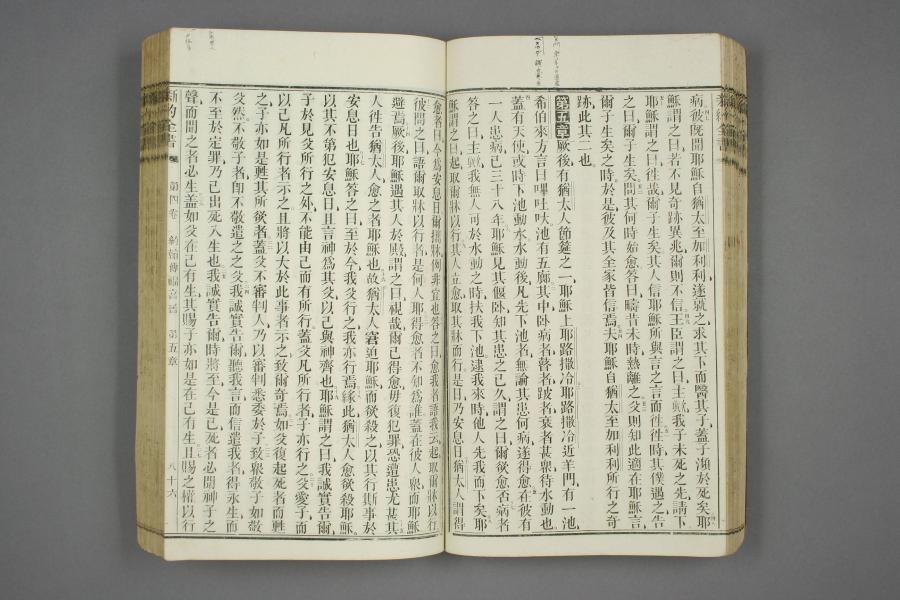 病、彼既聞耶穌自猶太至加利利、遂就之、求其下而醫其子、蓋子瀕於死矣、耶
穌謂之曰、若不見奇跡異兆、爾則不信、王臣謂之曰、主歟、我子未死之先、請下、
耶穌謂之曰、往哉、爾子生矣、其人信耶穌所與言之言而往、往時其僕遇之、告
之曰、爾子生矣、問其何時始愈、答曰、疇昔未時熱離之、父則知此適在耶穌言、
爾子生矣之時、於是彼及其全家皆信焉、夫耶穌自猶太至加利利、所行之奇
跡、此其二也、
第五章 厥後有猶太人節筵之一、耶穌上耶路撒冷、耶路撒冷近羊門、有一池、
希伯來方言曰畢士大、池有五廊、其中臥病者、瞽者、跛者、衰者甚衆、待水動也、
蓋有天使、或時下池動水、水動後、凡先下池者、無論其患何病、遂得愈、在彼有
一人患病已三十八年、耶穌見其偃臥、知其患之已久、謂之曰、爾欲愈否、病者
答之曰、主歟、我無人可於水動之時、扶我下池、逮我來時、他人先我而下矣、耶
穌謂之曰、起、取爾牀以行、其人立愈、取其牀而行、是日乃安息日、猶太人謂得
愈者曰、今爲安息日、爾攜牀、例非宜也、答之曰、愈我者、語我云、起、取爾牀以行、
彼問之曰、語爾取牀以行者、是何人耶、得愈者不知爲誰、蓋在彼人衆、而耶穌
避焉、厥後耶穌遇其人於殿、謂之曰、視哉、爾已得愈、毋復犯罪、恐遭患尤甚、其
人往告猶太人、愈之者耶穌也、故猶太人窘迫耶穌、而欲殺之、以其行斯事於
安息日也、耶穌答之曰、至於今我父行之、我亦行焉、緣此、猶太人愈欲殺耶穌、
以其不第犯安息日、且言神爲其父、以己與神齊也、耶穌謂之曰、我誠實告爾、
子於見父所行之外、不能由己而有所行、蓋父凡所行者、子亦行之、父愛子、而
以己凡所行者示之、且將以大於此事者示之、致爾奇焉、如父復起死者而甦
之、子亦如是甦其所欲者、蓋父不審判人、乃以審判悉委於子、致衆敬子如敬
父然、不敬子者、卽不敬遣之之父、我誠實告爾、聽我言而信遣我者、得永生、而
不至於定罪、乃已出死入生也、我誠實告爾、時將至、今是已、死者必聞神子之
聲、而聞之者必生、蓋如父在己有生、其賜子亦如是在己有生、且賜之權以行
新約全書
第四卷 約翰傳福音書 第五章
八十六